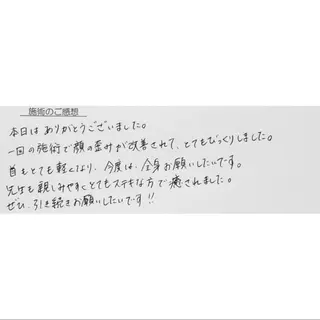 施術のご感想
本日はありがとうございました。
一回の施術で顔の歪みが改善されて、とてもびっくりしました。
首もとても軽くなり、今度は、全身お願いしたいです。
先生も親しみやすくとてもステキな方で癒されました。
ぜひ、引き続きお願いしたいです!!